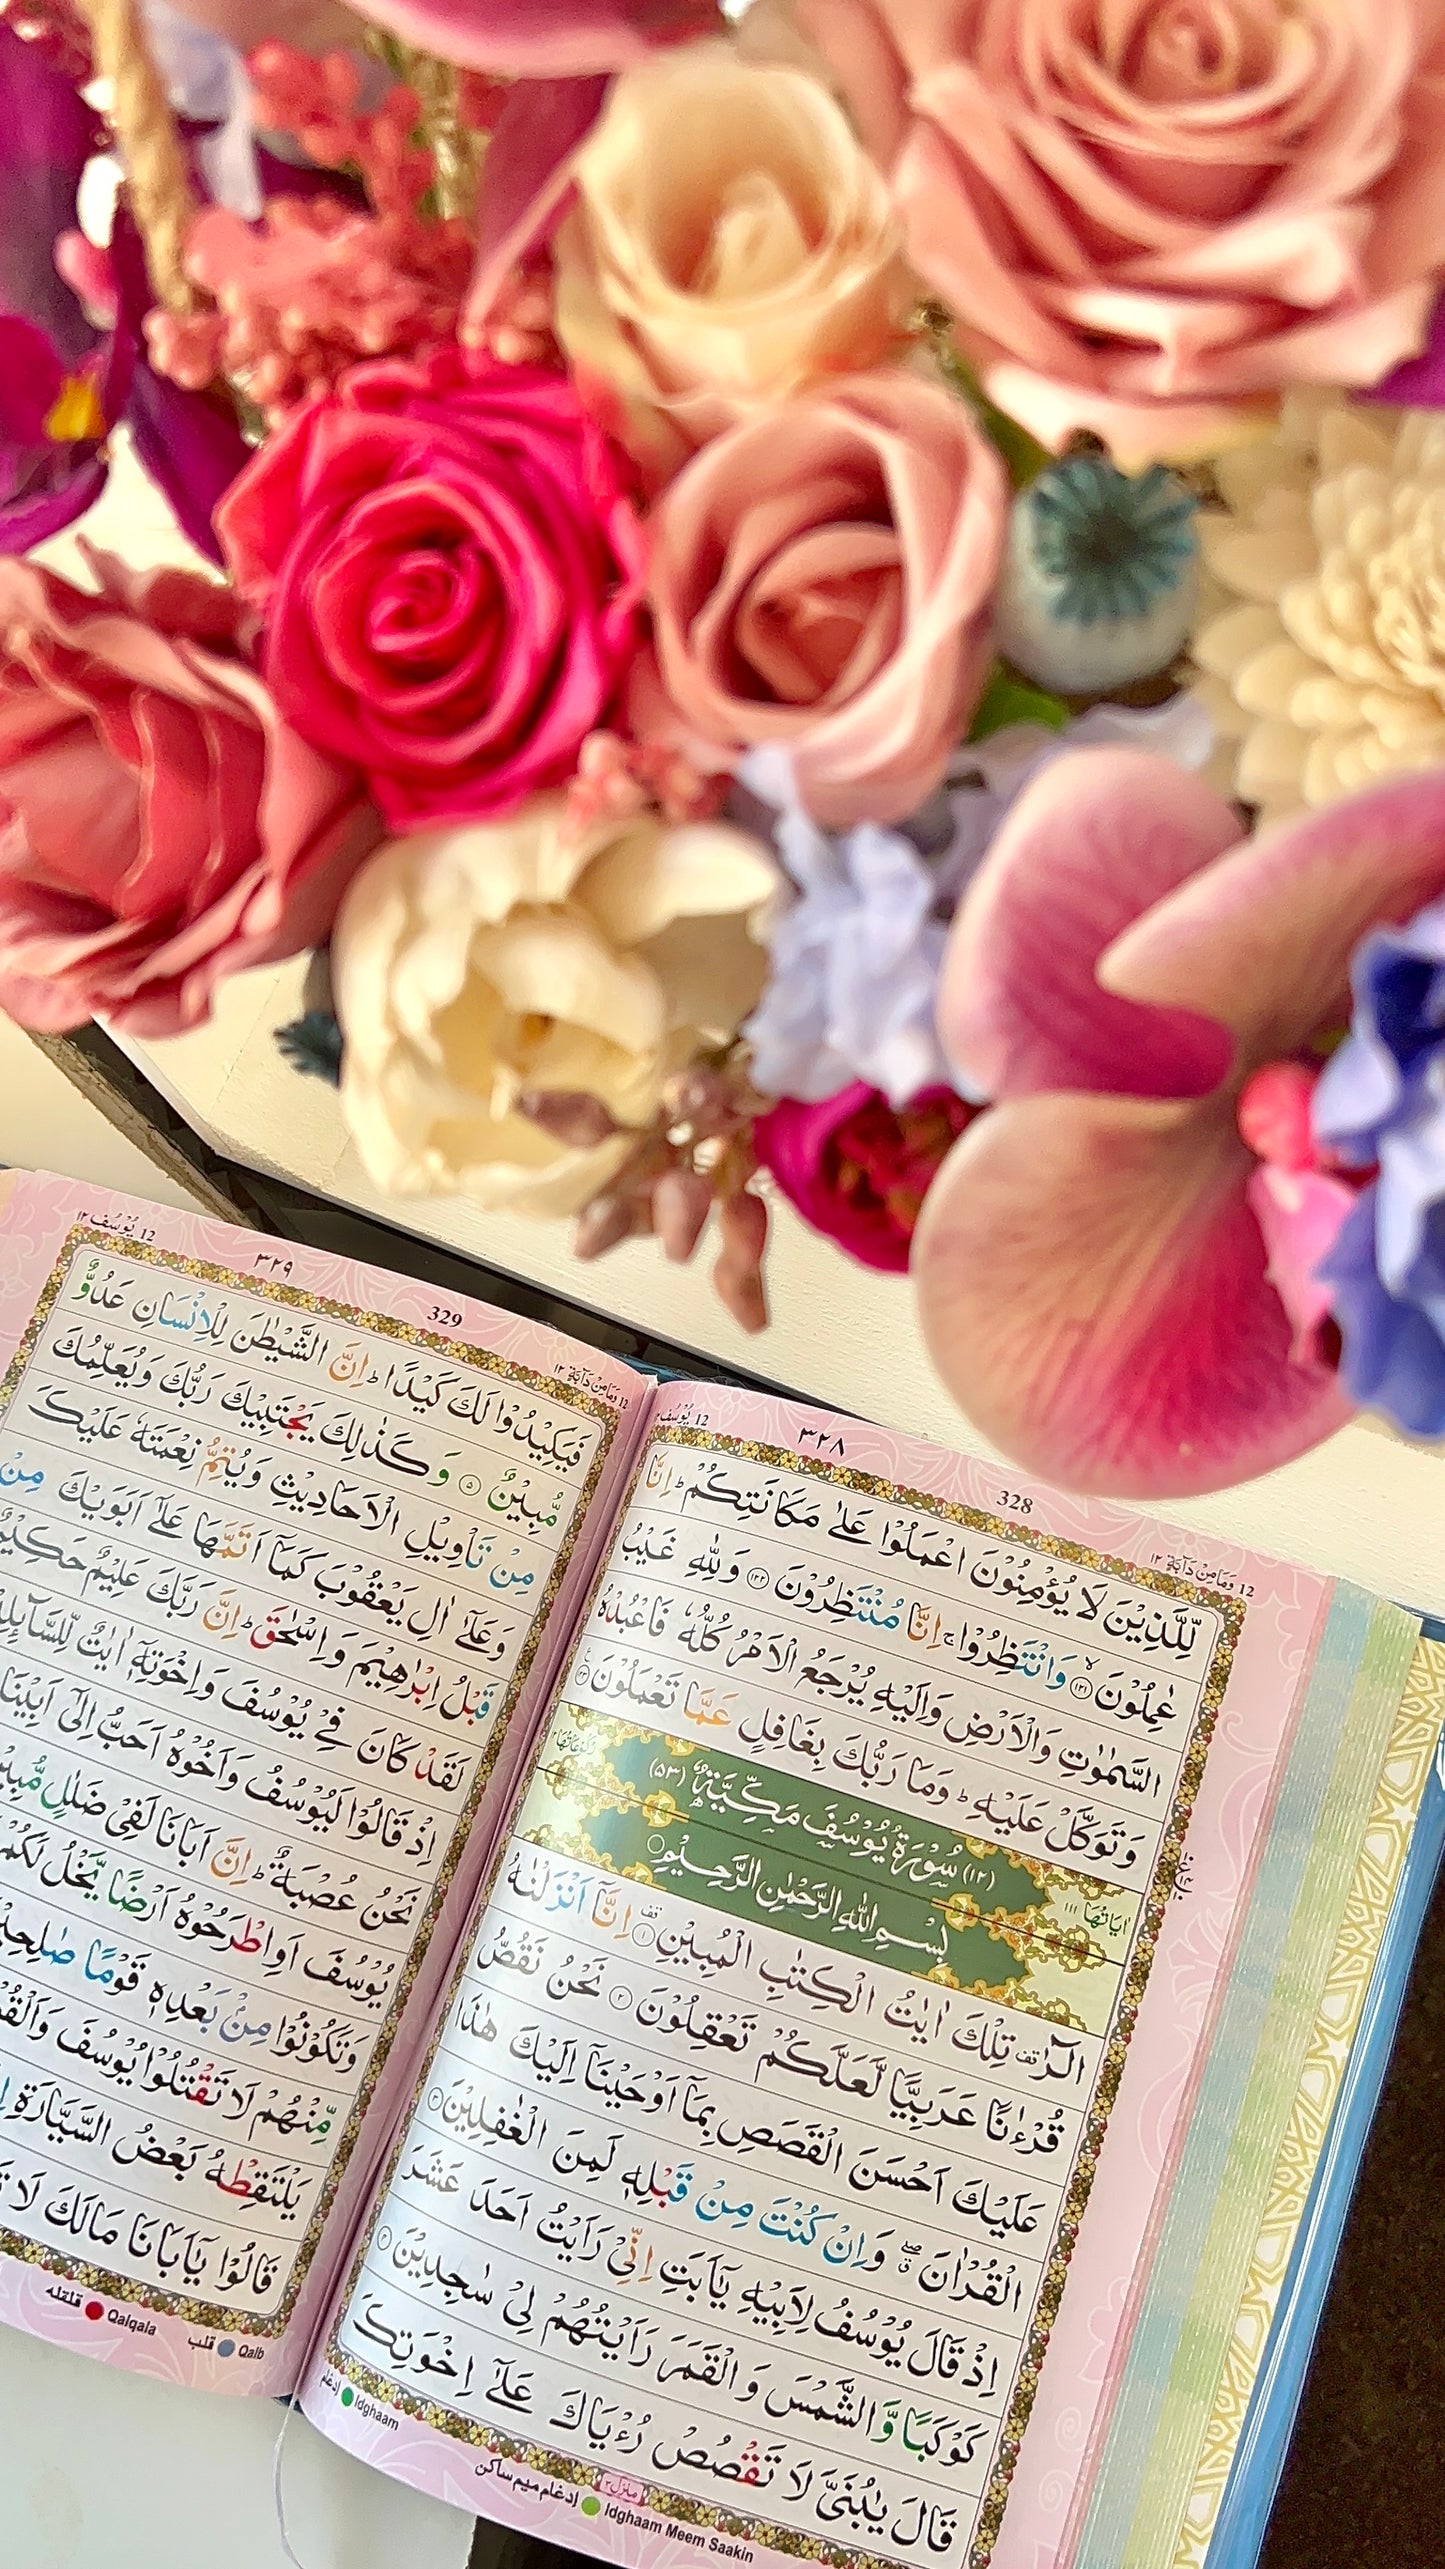 12 يُوْسُف ١٢
٣٢٨
328
12 وَمَا مِنْ دَآبَّةٍ ١٢
لِّلَّذِيْنَ لَا يُؤْمِنُوْنَ اعْمَلُوْا عَلٰى مَكَانَتِكُمْ ؕ اِنَّا
عٰمِلُوْنَ ۙ﴿۱۲۱﴾ وَانْتَظِرُوْا ۚ اِنَّا مُنْتَظِرُوْنَ ﴿۱۲۲﴾ وَلِلّٰهِ غَيْبُ
السَّمٰوٰتِ وَالْاَرْضِ وَاِلَيْهِ يُرْجَعُ الْاَمْرُ كُلُّهٗ فَاعْبُدْهُ
وَتَوَكَّلْ عَلَيْهِ ؕ وَمَا رَبُّكَ بِغَافِلٍ عَمَّا تَعْمَلُوْنَ ﴿۱۲۳﴾
اٰيَاتُهَا ۱۱۱
(۱۲) سُوْرَةُ يُوْسُفَ مَكِّيَّةٌ (۵۳)
رُكُوْعَاتُهَا ۱۲
بِسْمِ اللّٰهِ الرَّحْمٰنِ الرَّحِيْمِ
الٓرٰ ۟ تِلْكَ اٰيٰتُ الْكِتٰبِ الْمُبِيْنِ ﴿۱﴾ اِنَّاۤ اَنْزَلْنٰهُ
قُرْءٰنًا عَرَبِيًّا لَّعَلَّكُمْ تَعْقِلُوْنَ ﴿۲﴾ نَحْنُ نَقُصُّ
عَلَيْكَ اَحْسَنَ الْقَصَصِ بِمَاۤ اَوْحَيْنَاۤ اِلَيْكَ هٰذَا
الْقُرْاٰنَ ۖ وَاِنْ كُنْتَ مِنْ قَبْلِهٖ لَمِنَ الْغٰفِلِيْنَ ﴿۳﴾
اِذْ قَالَ يُوْسُفُ لِاَبِيْهِ يٰۤاَبَتِ اِنِّيْ رَاَيْتُ اَحَدَ عَشَرَ
كَوْكَبًا وَّالشَّمْسَ وَالْقَمَرَ رَاَيْتُهُمْ لِيْ سٰجِدِيْنَ ﴿۴﴾
قَالَ يٰبُنَيَّ لَا تَقْصُصْ رُءْيَاكَ عَلٰۤى اِخْوَتِكَ
منزل ۳
إدغام Idghaam
إدغام ميم ساكن Idghaam Meem Saakin
12 يُوْسُف ١٢
٣٢٩
329
12 وَمَا مِنْ دَآبَّةٍ ١٢
فَيَكِيْدُوْا لَكَ كَيْدًا ؕ اِنَّ الشَّيْطٰنَ لِلْاِنْسَانِ عَدُوٌّ
مُّبِيْنٌ ﴿۵﴾ وَكَذٰلِكَ يَجْتَبِيْكَ رَبُّكَ وَيُعَلِّمُكَ
مِنْ تَاْوِيْلِ الْاَحَادِيْثِ وَيُتِمُّ نِعْمَتَهٗ عَلَيْكَ
وَعَلٰۤى اٰلِ يَعْقُوْبَ كَمَاۤ اَتَمَّهَا عَلٰۤى اَبَوَيْكَ مِنْ
قَبْلُ اِبْرٰهِيْمَ وَاِسْحٰقَ ؕ اِنَّ رَبَّكَ عَلِيْمٌ حَكِيْمٌ
لَقَدْ كَانَ فِيْ يُوْسُفَ وَاِخْوَتِهٖۤ اٰيٰتٌ لِّلسَّآىِٕلِيْنَ
اِذْ قَالُوْا لَيُوْسُفُ وَاَخُوْهُ اَحَبُّ اِلٰۤى اَبِيْنَا
نَحْنُ عُصْبَةٌ ؕ اِنَّ اَبَانَا لَفِيْ ضَلٰلٍ مُّبِيْنٍ
يُوْسُفَ اَوِ اطْرَحُوْهُ اَرْضًا يَّخْلُ لَكُمْ
وَتَكُوْنُوْا مِنْۢ بَعْدِهٖ قَوْمًا صٰلِحِيْنَ
مِّنْهُمْ لَا تَقْتُلُوْا يُوْسُفَ وَاَلْقُوْهُ
يَلْتَقِطْهُ بَعْضُ السَّيَّارَةِ
قَالُوْا يٰۤاَبَانَا مَالَكَ لَا
قلقله Qalqala
قلب Qalb